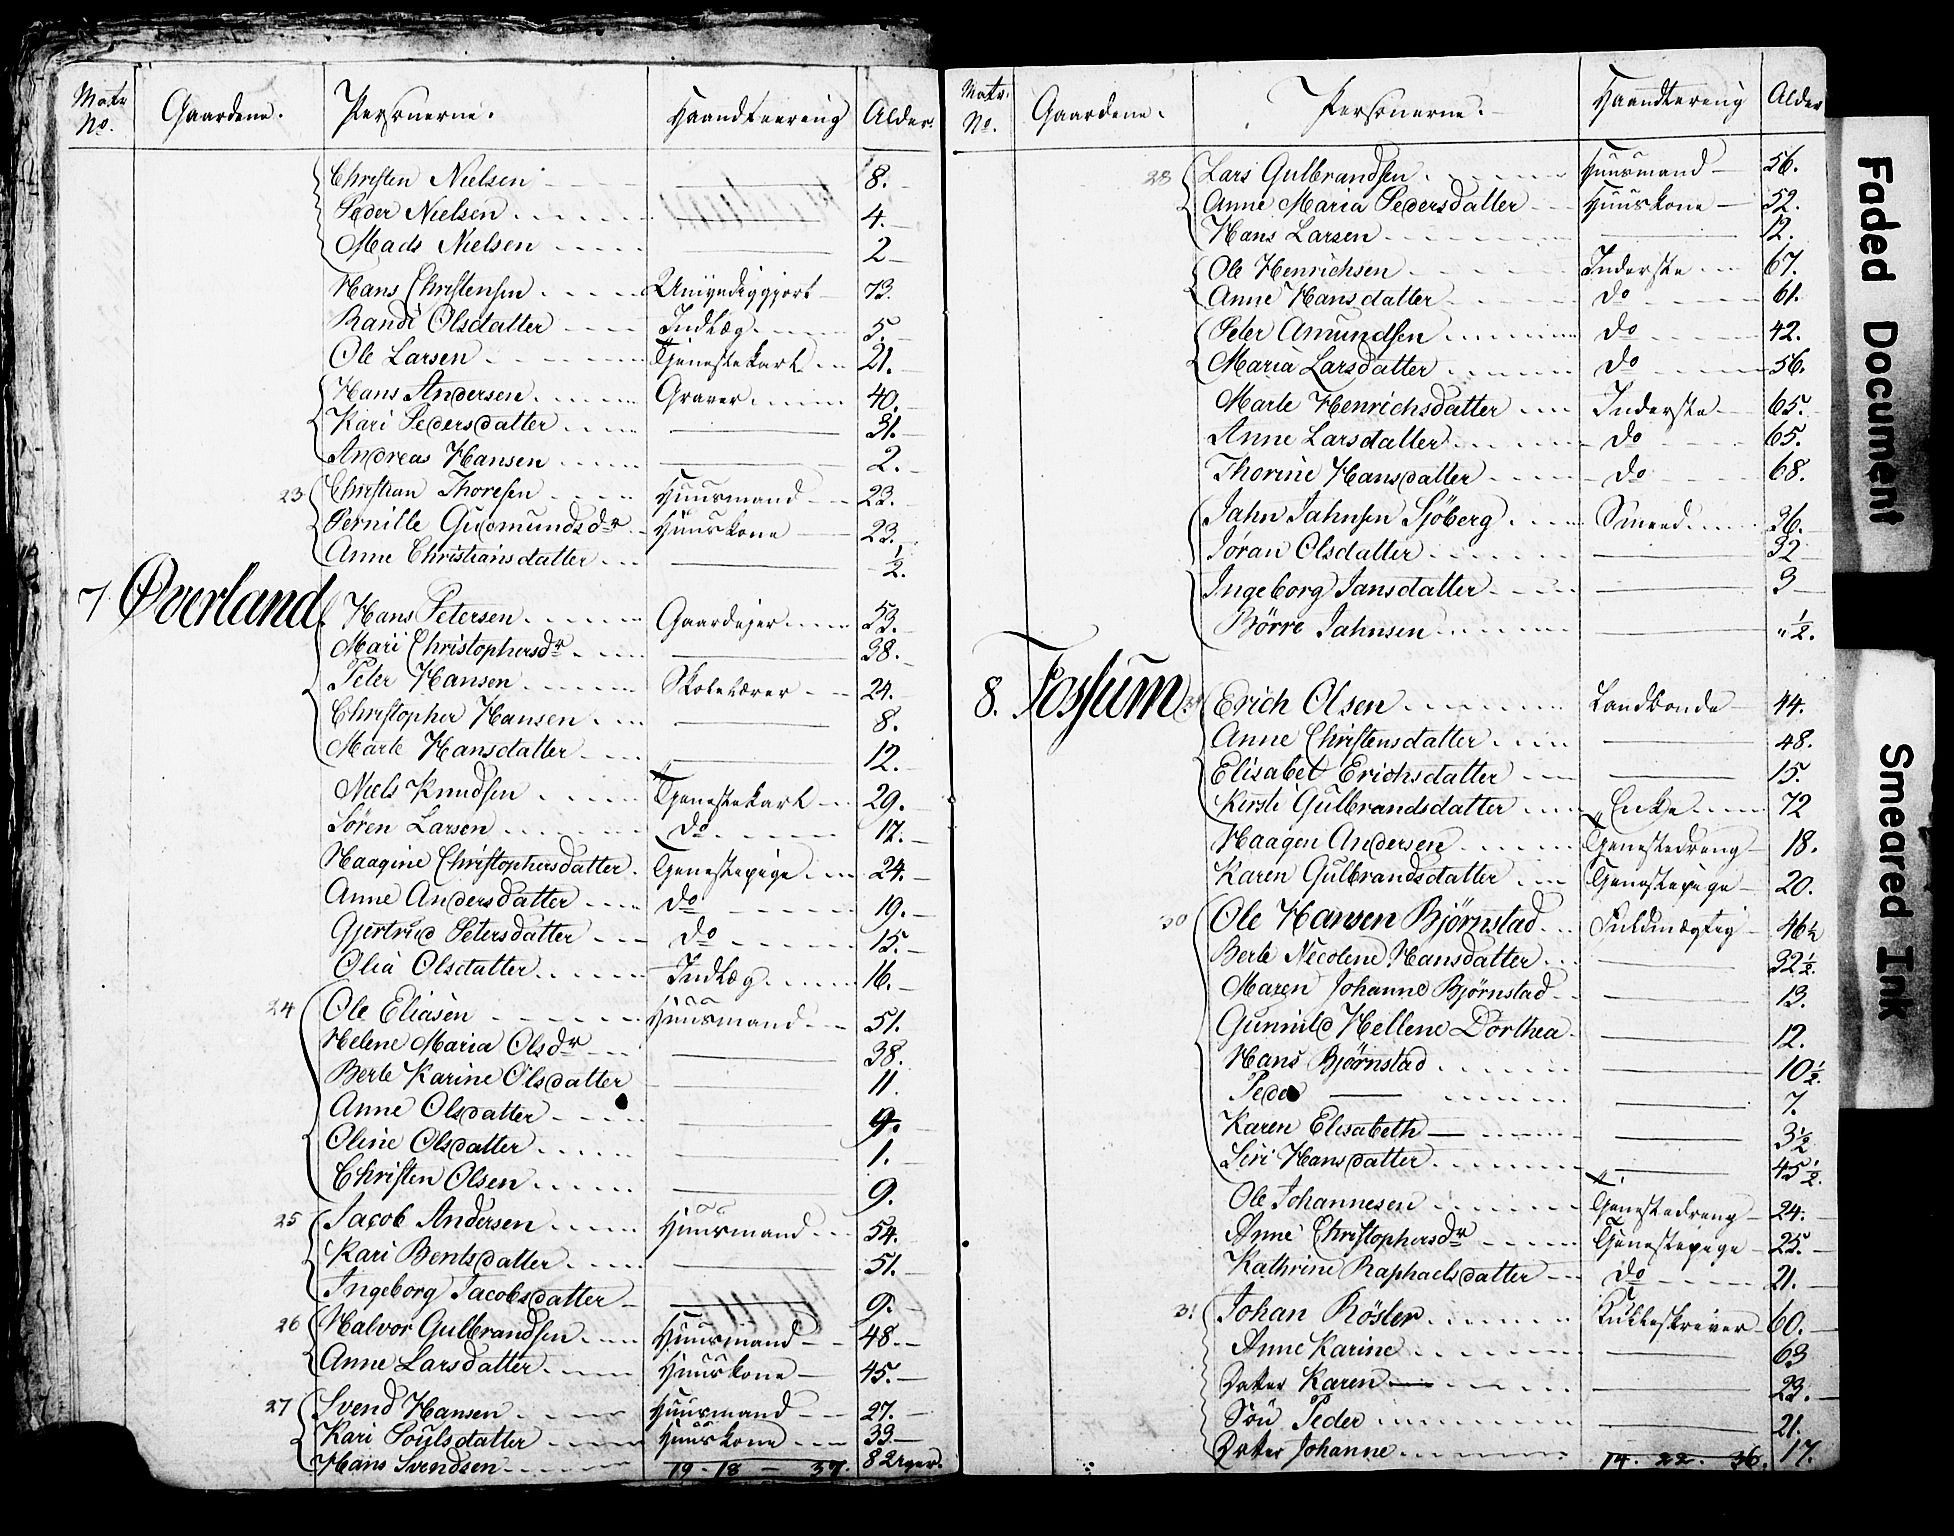 Matr No. Gaardene. Personerne. Haandteering Alder.
Christen Nielsen 8.
Peder Nielsen 4.
Mads Nielsen 2
Hans Christensen Umyndiggjort 73.
Randi Olsdatter Indlæg 5.
Ole Larsen Tjenestekarl 21.
Hans Andersen Graver 40.
Kari Pedersdatter 31.
Andreas Hansen 2.
23 Christian Thoresen Huusmand 23.
Pernille Gudmundsdr Huuskone 23.
Anne Christiansdatter ½.
7 Øverland Hans Petersen Gaardejer 53.
Mari Christophersdr 38.
Peter Hansen Skolelærer 24.
Christopher Hansen 8.
Marte Hansdatter 12.
Niels Knudsen Tjenestekarl 29.
Søren Larsen do 17.
Haagine Christophersdatter Tjenestepige 24.
Anne Andersdatter do 19.
Gjertrud Petersdatter do 15.
Olia Olsdatter Indlæg 16.
24 Ole Eliasen Huusmand 51.
Helene Maria Olsdr 38.
Berte Karine Olsdatter 11.
Anne Olsdatter
Oline Olsdatter 1.
Christen Olsen 9.
25 Jacob Andersen Huusmand 54.
Kari Bentsdatter 51.
Ingeborg Jacobsdatter 9.
26 Halvor Gulbrandsen Huusmand 48.
Anne Larsdatter Huuskone 45.
27 Svend Hansen Huusmand 27.
Kari Poulsdatter Huuskone 33.
Hans Svendsen 19 - 18 - 37. 8 Uger.
Matr. No. Gaardene. Personerne. Haandtering Alder
28 Lars Gulbrandsen Huusmand 56.
Anne Maria Pedersdatter Huuskone 52.
Hans Larsen 12.
Ole Henrichsen Inderste 67.
Anne Hansdatter do 61.
Peter Amundsen do 42.
Maria Larsdatter do 56.
Marte Henrichsdatter Inderste 65.
Anne Larsdatter do 65.
Thorine Hansdatter do 68.
Jahn Jahnsen Sjöberg Smeed 36.
Jøran Olsdatter 32
Ingeborg Jansdatter 3
Börre Jahnsen " ½.
8. Fossum Erich Olsen Landbonde 44.
Anne Christensdatter 48.
Elisabet Erichsdatter 15.
Kirsti Gulbrandsdatter Enke 72
Haagen Andersen Tjenestedreng 18.
Karen Gulbrandsdatter Tjenestepige 20.
30 Ole Hansen Björnstad Fuldmægtig 46½
Berte Nicoline Hansdatter 32½.
Maren Johanne Björnstad 13.
Gunnild Hellene Dorthea 12.
Hans Björnstad 10½.
Peder — 7.
Karen Elisabeth — 3½
Siri Hansdatter 45½.
Ole Johannesen Tjenestedreng 24.
Anne Christophersdr Tjenestepige 25.
Kathrine Raphaelsdatter do 21.
31 Johan Rösler Kulleskriver 60.
Anne Karine 63
Datter Karen 23.
Sön Peder 21.
Datter Johanne 14. 22. 36. 17.
Faded Document
Smeared Ink